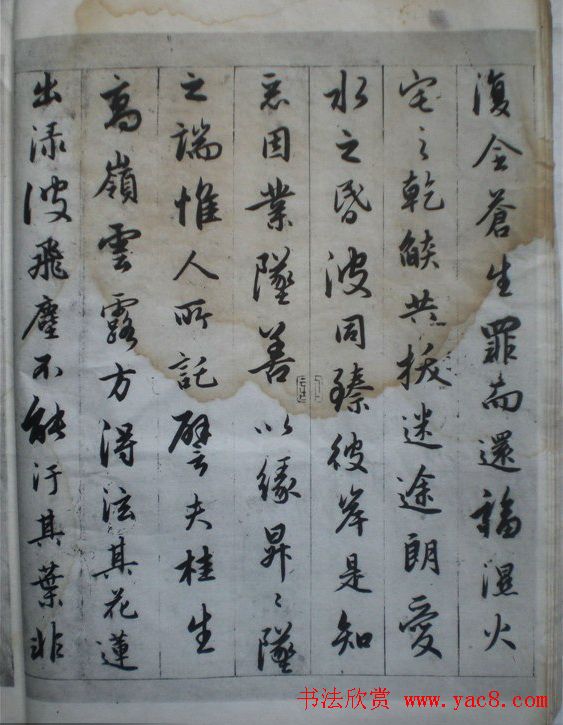 復全蒼生罪而還福濕火
宅之乾燄共拔迷途朗愛
水之昏波同臻彼岸是知
惡因業墜善以緣昇々墜
之端惟人所託譬夫桂生
高嶺雲露方得泫其花蓮
出淥波飛塵不能汙其葉非
书法欣赏 www.yac8.com